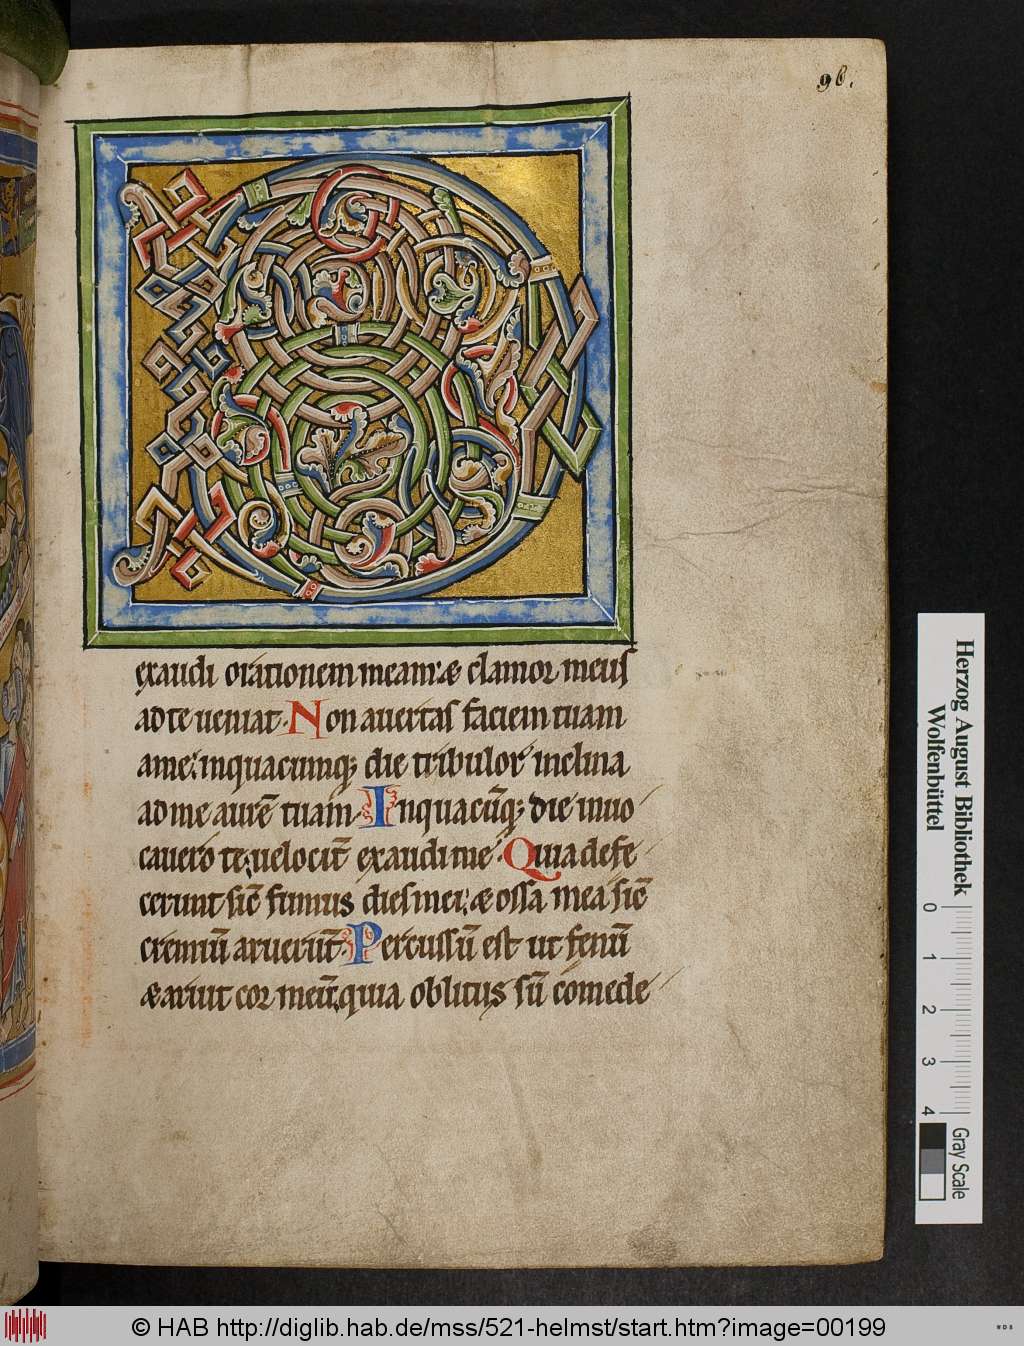 96.
D
exaudi orationem meam. & clamor meus
ad te ueniat. Non auertas faciem tuam
a me. in quacumq; die tribulor inclina
ad me aurē tuam. In quacūq; die inuo
cauero te. uelocit̄ exaudi me. Quia defe
cerunt sic̄ fumus dies mei. & ossa mea sic̄
cremiū aruerūt. Percussū est ut fenū
& aruit cor meū. quia oblitus sū comede
Herzog August Bibliothek
Wolfenbüttel
0 1 2 3 4
Gray Scale
© HAB http://diglib.hab.de/mss/521-helmst/start.htm?image=00199
WDB